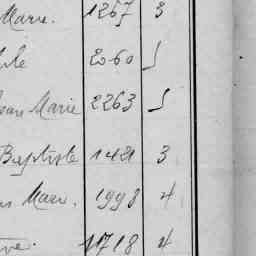 Marie. 1267 3
2060 5
Jean Marie 2263 5
Baptiste 1421 3
Marie. 1998 4
1718 4